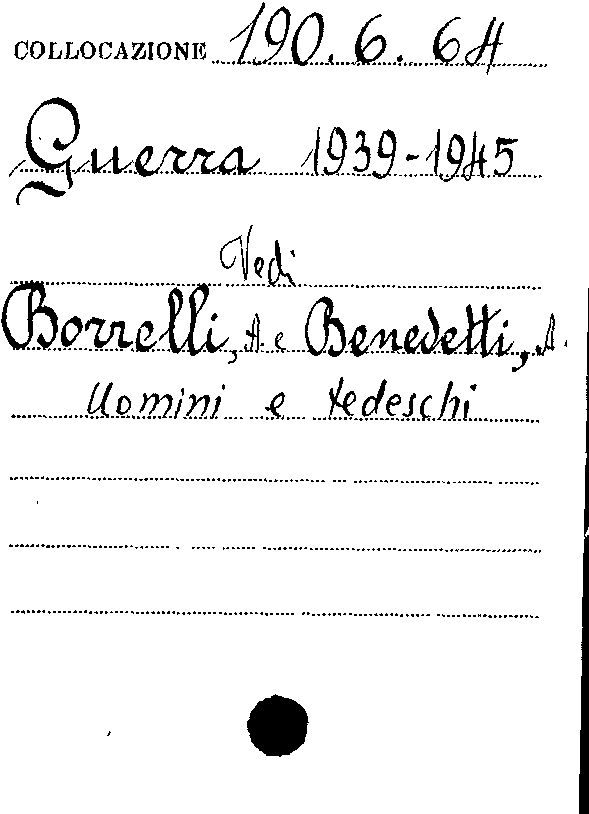 COLLOCAZIONE 190.6.64
Guerra 1939-1945
Vedi
Borrelli, A. e Benedetti, A.
Uomini e tedeschi